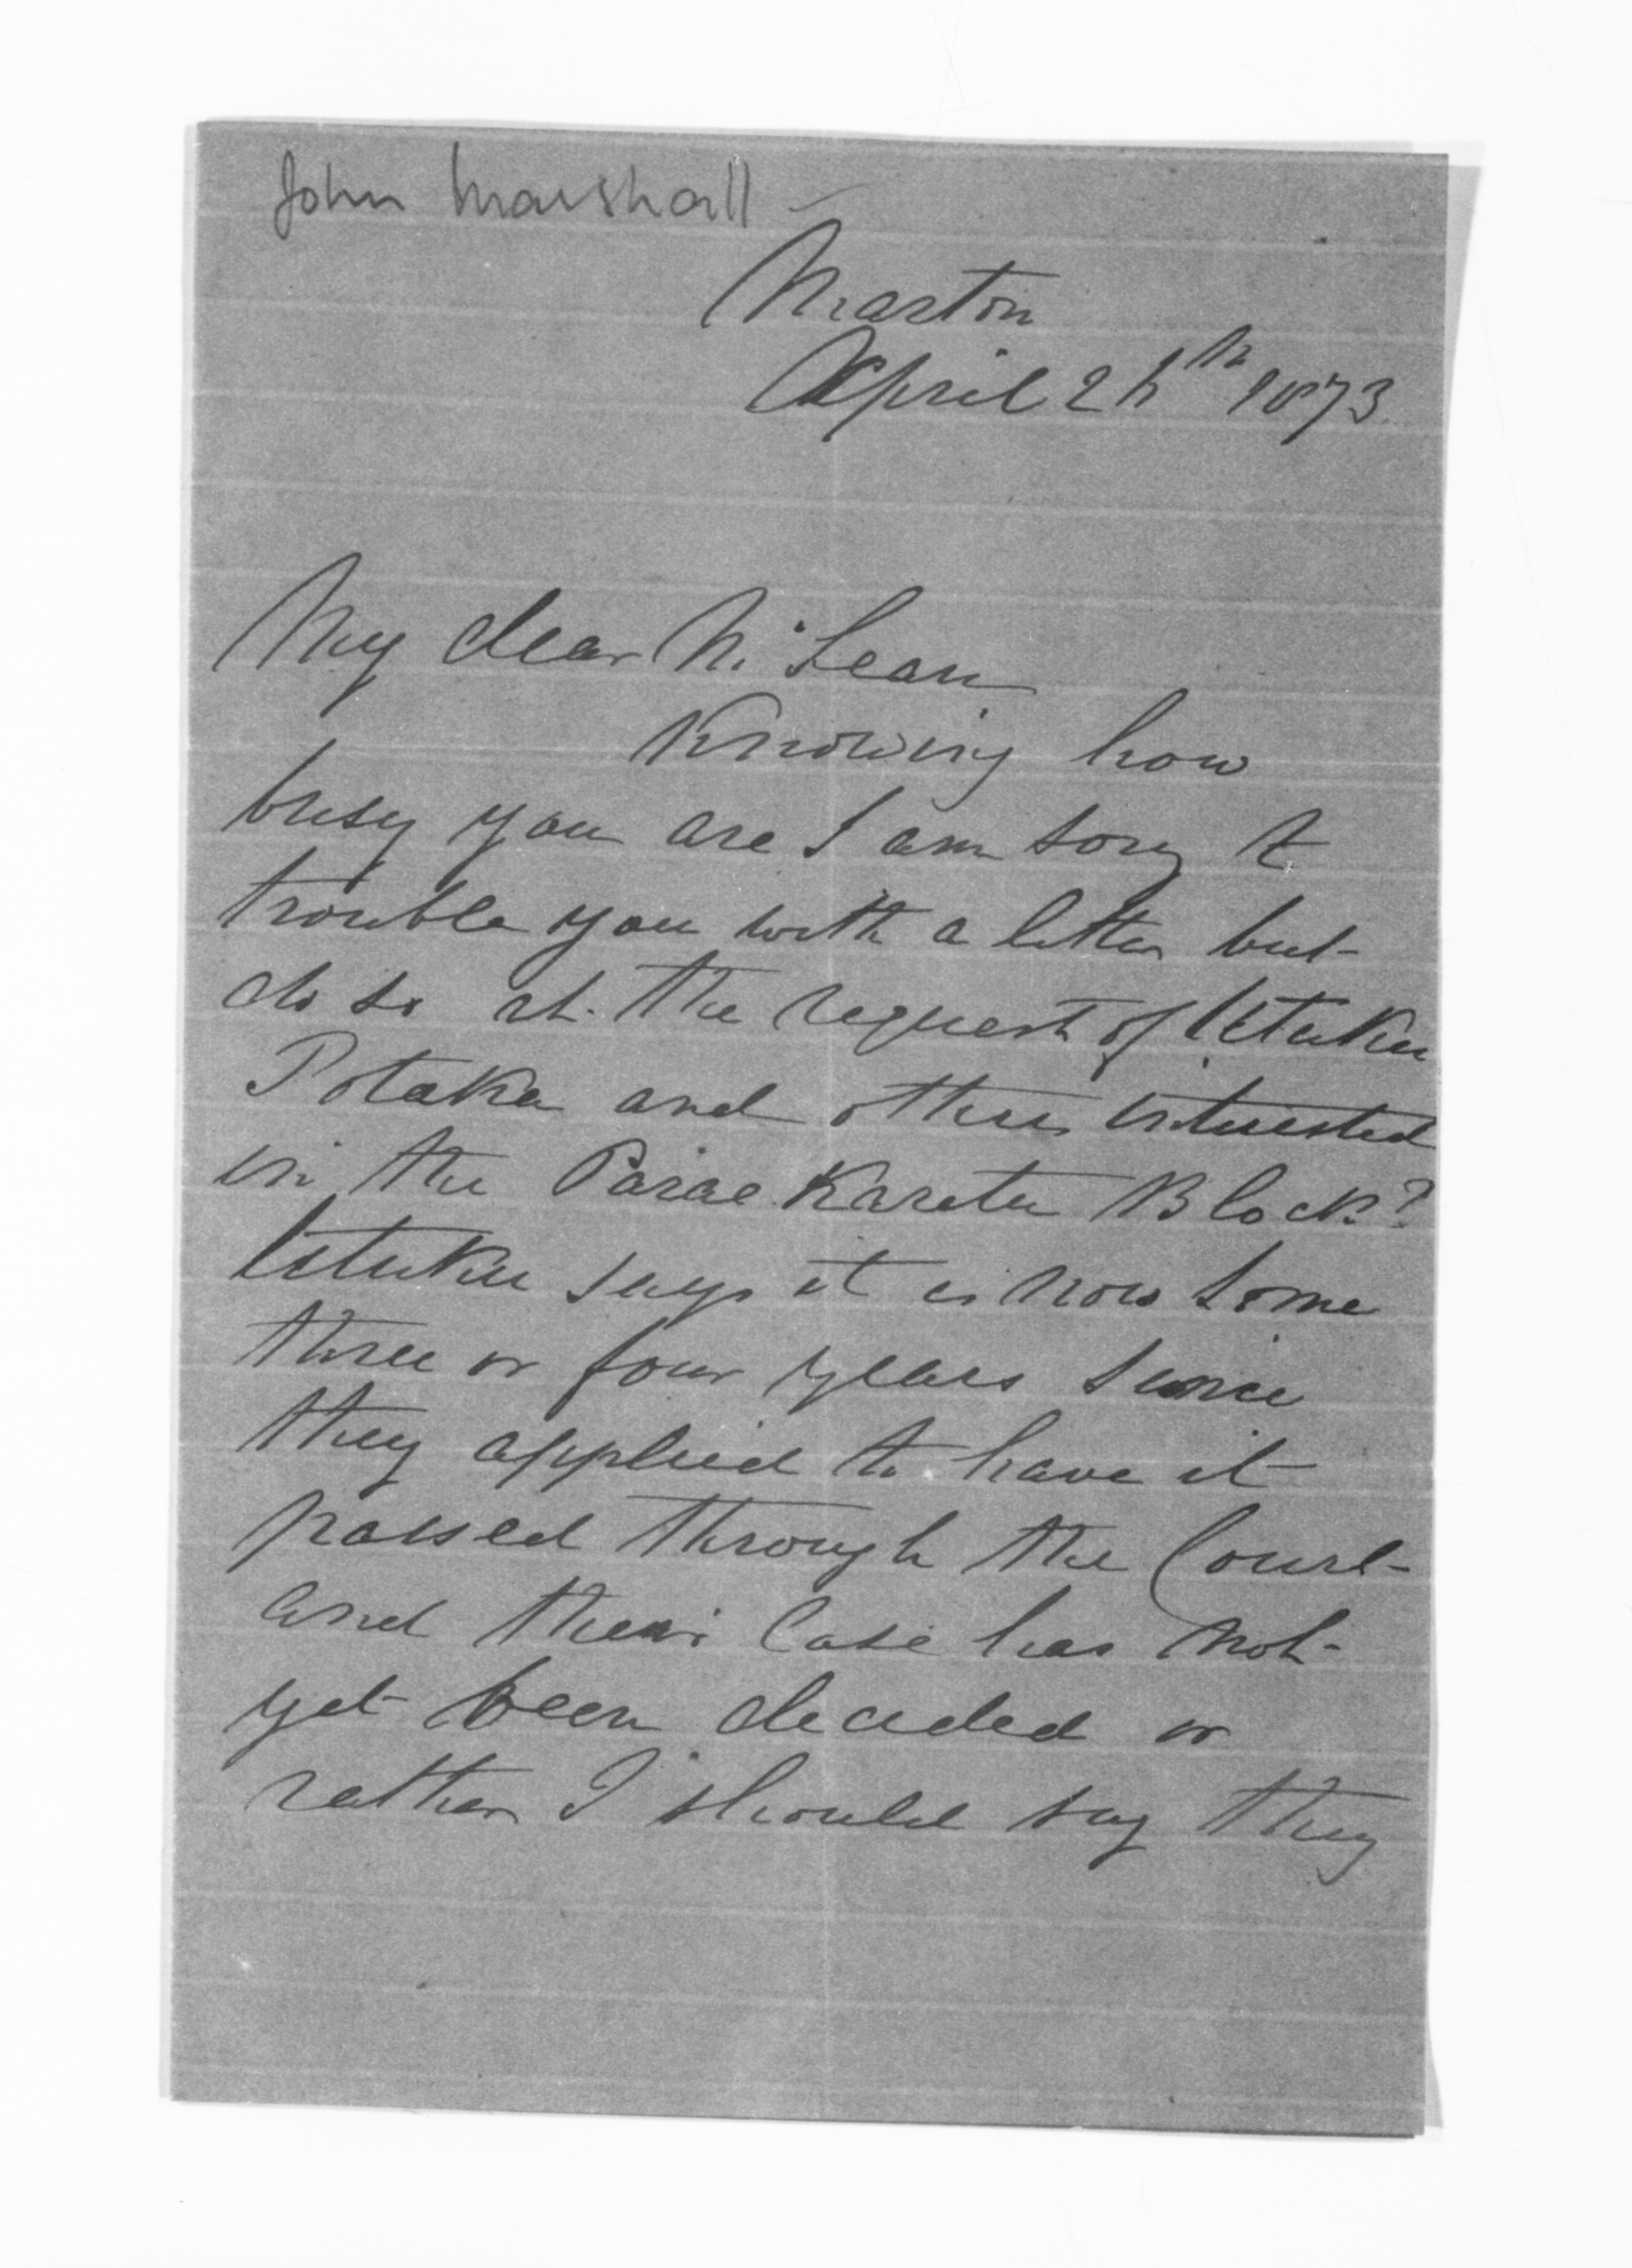 John Marshall
Marton
April 26th 1873.
My dear McLean
Knowing how
busy you are I am sorry to
trouble you with a letter but
do so at the request of Utuku
Potaka and others interested
in the Parae Karetu Block?
Utuku says it is now some
three or four years since
they applied to have it
passed through the Court
and their case has not
yet been decided or
rather I should say they